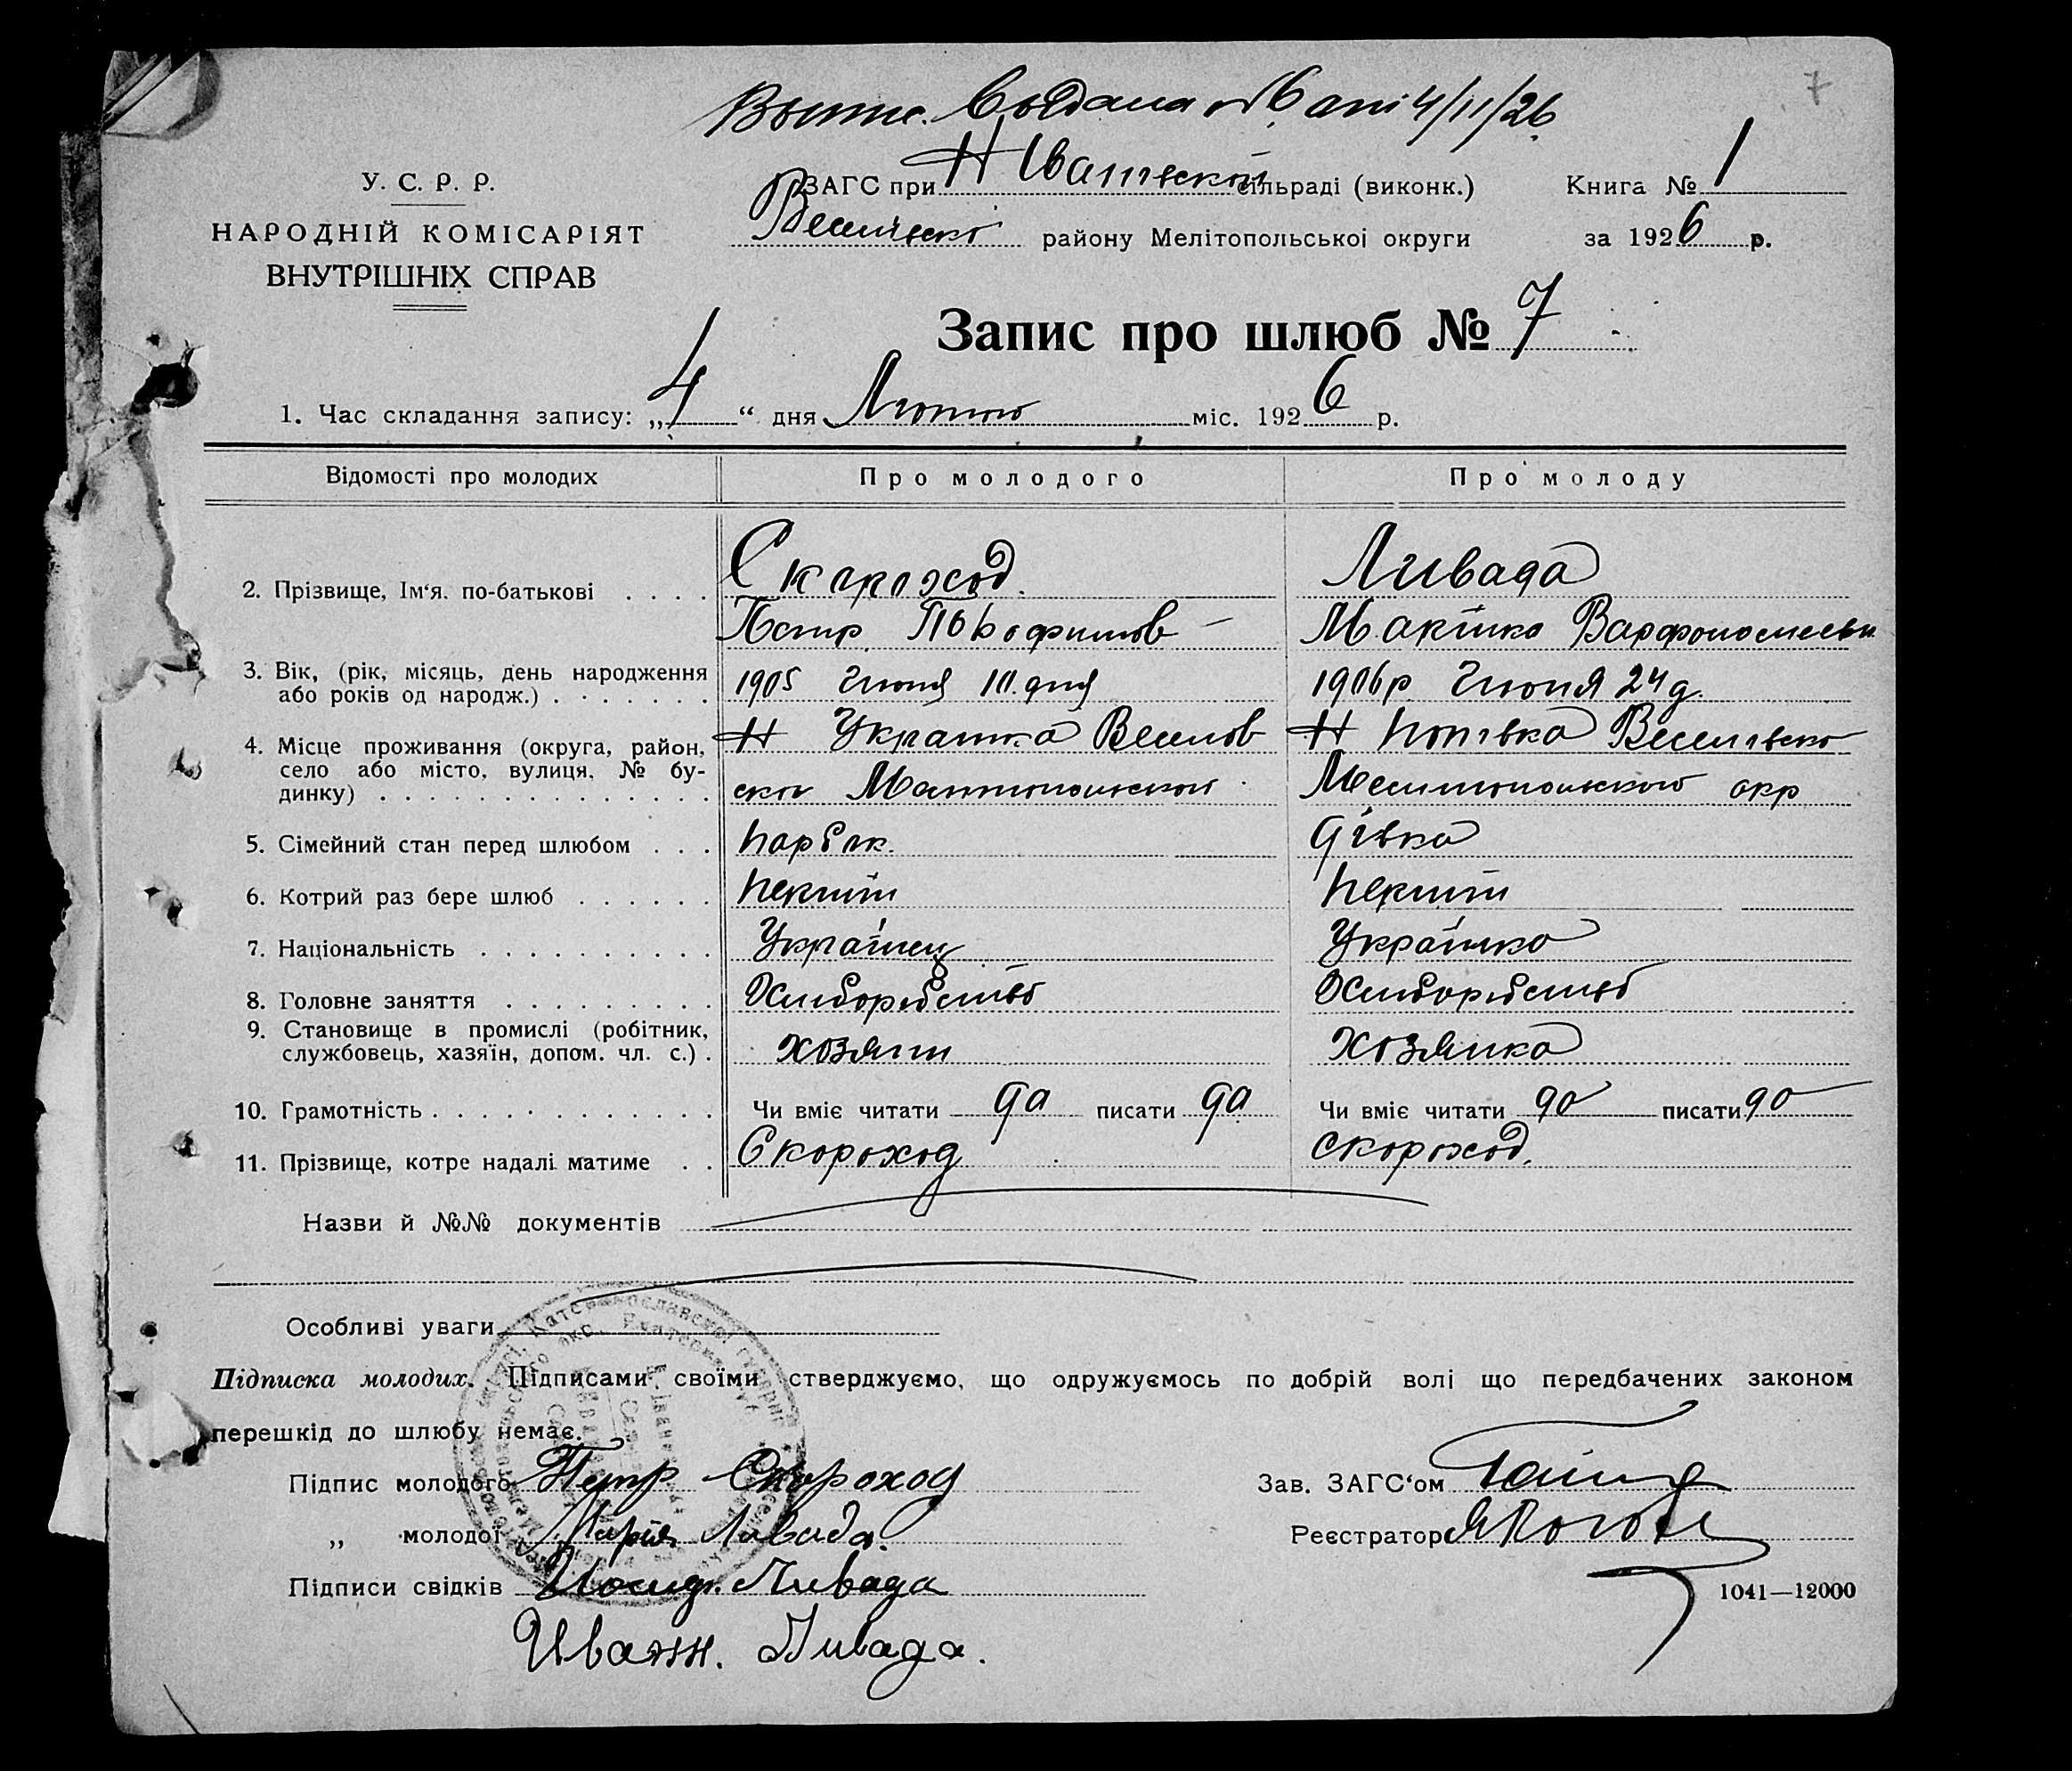 Выпис. Выдана 4/II/26
7
У. С. Р. Р.
НАРОДНІЙ КОМІСАРІЯТ
ВНУТРІШНІХ СПРАВ
ЗАГС при Н Іванівский сільраді (виконк.)
Книга № 1
Веселівско району Мелітопольської округи
за 1926 р.
Запис про шлюб № 7
1. Час складання запису: „4“ дня Лютого міс. 1926 р.
Відомості про молодих Про молодого Про молоду
2. Прізвище, Ім‘я. по-батькові . . . . Скороход Ливада
Петр Марійка
3. Вік, (рік, місяць, день народження
або років од народж.) . . . . . . . 1905 Июня 10. дня 1906р Июня 24 д.
4. Місце проживання (округа, район,
село або місто, вулиця, № бу-
динку) . . . . . . . . . . . . . .
Н Українка Веселов Н Поківка Веселівско
ского Мелитопольского Мелитопольского окр
5. Сімейний стан перед шлюбом . . . парубок. дівка
6. Котрий раз бере шлюб . . . . . . перший перший
7. Національність . . . . . . . . . . Українец Українка
8. Головне заняття . . . . . . . . . Хлиборобство Хлиборобство
9. Становище в промислі (робітник,
службовець, хазяїн, допом. чл. с.) . хозяин хозяйка
10. Грамотність . . . . . . . . . . . . Чи вміє читати да писати да Чи вміє читати да писати да
11. Прізвище, котре надалі матиме . . Скороход Скороход.
Назви й №№ документів
Особливі уваги
Підписка молодих. Підписами своїми стверджуємо, що одружуємось по добрій волі що передбачених законом
перешкід до шлюбу немає.
Підпис молодого Петр Скороход
Зав. ЗАГС‘ом
„ молодої Марія Ливада.
Реєстратор
Підписи свідків Иосиф. Ливада
1041—12000
Иванн. Ливада.